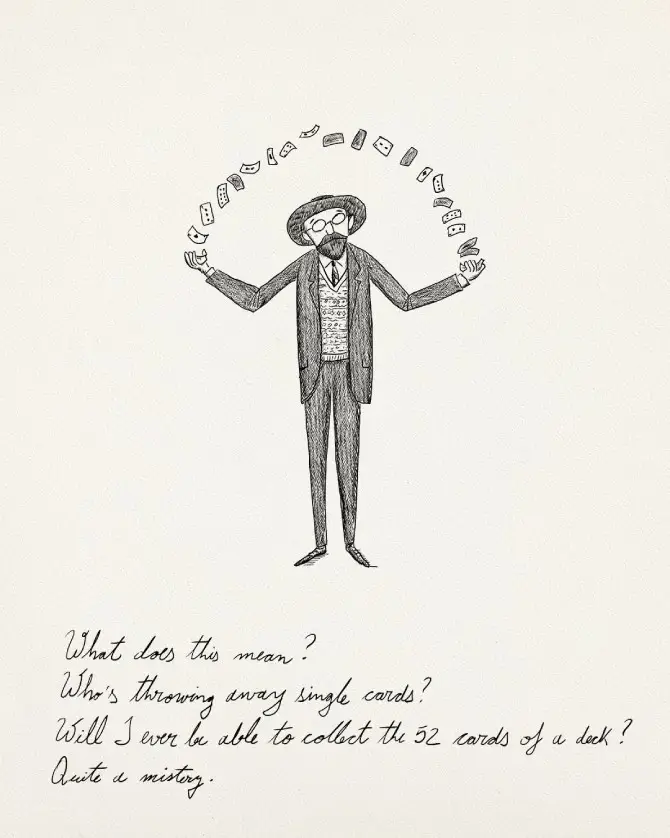 What does this mean?
Who's throwing away single cards?
Will I ever be able to collect the 52 cards of a deck?
Quite a mistery.